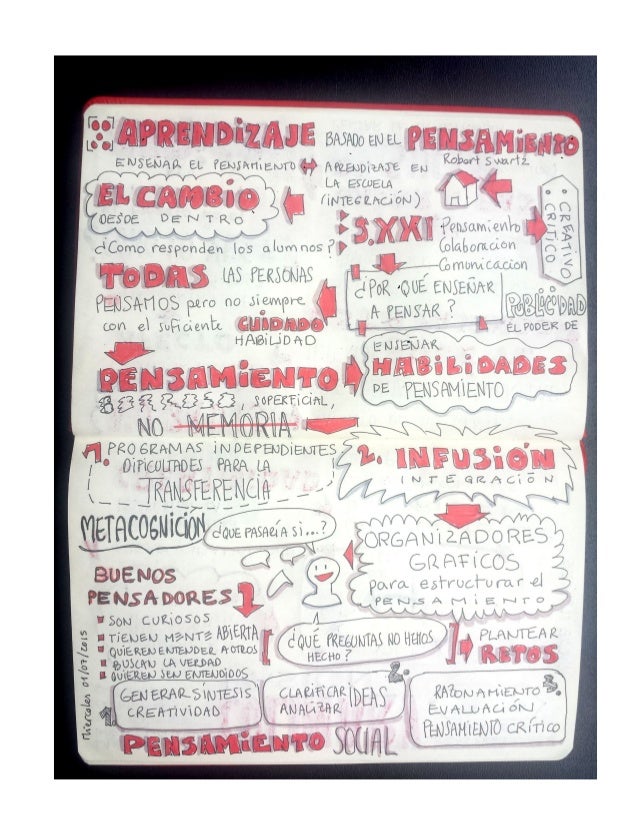 APRENDIZAJE BASADO EN EL PENSAMIENTO
Robert Swartz
ENSEÑAR EL PENSAMIENTO ↔ APRENDIZAJE EN
LA ESCUELA
(INTEGRACIÓN)
EL CAMBIO
DESDE DENTRO
¿Como responden los alumnos?
S.XXI
Pensamiento
Colaboración
Comunicación
CREATIVO
CRÍTICO
TODAS LAS PERSONAS
PENSAMOS pero no siempre
con el suficiente CUIDADO
HABILIDAD
¿POR QUÉ ENSEÑAR
A PENSAR?
PUBLICIDAD
EL PODER DE
ENSEÑAR
HABILIDADES
DE PENSAMIENTO
PENSAMIENTO
, SUPERFICIAL,
NO MEMORIA
1. PROGRAMAS INDEPENDIENTES
DIFICULTADES PARA LA
TRANSFERENCIA
2. INFUSIÓN
INTEGRACIÓN
METACOGNICIÓN
¿QUE PASARÍA SI...?
ORGANIZADORES
GRAFICOS
para estructurar el
PENSAMIENTO
BUENOS
PENSADORES
SON CURIOSOS
TIENEN MENTE ABIERTA
QUIEREN ENTENDER A OTROS
BUSCAN LA VERDAD
QUIEREN SER ENTENDIDOS
¿QUÉ PREGUNTAS NO HEMOS
HECHO?
PLANTEAR
RETOS
Miercoles 01/07/2015
1.
GENERAR SÍNTESIS
CREATIVIDAD
2.
CLARIFICAR IDEAS
ANALIZAR
3.
RAZONAMIENTO
EVALUACIÓN
PENSAMIENTO CRÍTICO
PENSAMIENTO SOCIAL